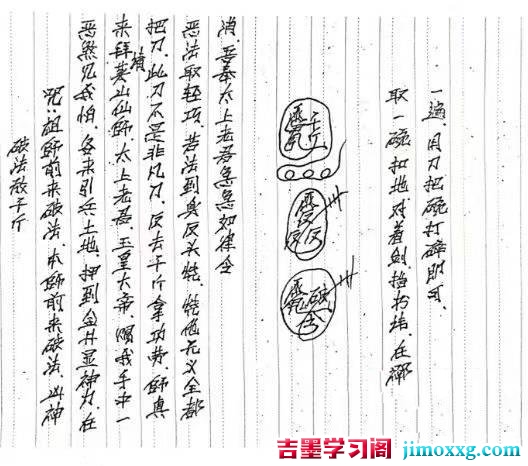 破法敌千斤
咒:祖师前来破法、本师前来破法、凶神
恶煞见我怕、各来引兵土地、押到金井显神力、在
来拜茅山仙师、太上老君、玉皇大帝、赐我手中一
把刀、此刀不是非凡刀、反去千斤拿功劳、师真
恶法取轻巧、若法到身反头烧、烧他无义全部
消、吾奉太上老君急急如律令
取一碗扣地对着剑、指书讳、在
一遍、用刀把碗打碎即可
吉墨学习阁 jimoxxg.com